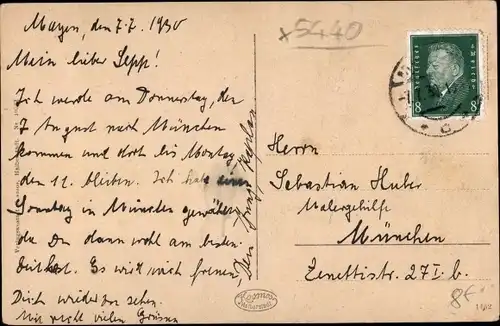 Mayen, den 7.7. 1930
Mein lieber Sepp!
Ich werde am Donnerstag, der
7 August nach München
kommen und dort bis Montag
den 11. bleiben. Ich habe
Sonntag in München gewählt,
da Du dann wohl am besten
Zeit hast. Es wird mich freuen,
Dich wieder zu sehen.
Mit recht vielen Grüssen
Dein Franz Kaplan
x5440
Herrn
Sebastian Huber
Malergehilfe
München
Zenettistr. 27 I. b.
8€
8 8
Cosmos